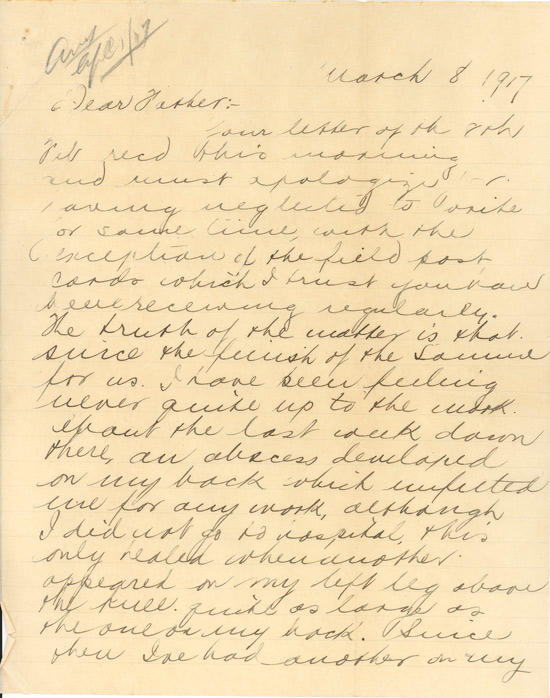 March 8 1917
Dear Father:-
Your letter of the 7th
Feb recd this morning
and must apologize for
having neglected to write
for some time, with the
exception of the field post
cards which I trust you have
been receiving regularly.
The truth of the matter is that
since the finish of the Somme
for us. I have been feeling
never quite up to the mark.
about the last week down
there, an abscess developed
on my back which unfitted
me for any work, although
I did not go to hospital, this
only healed when another
appeared on my left leg above
the knee. quite as large as
the one on my back. Since
then I've had another on my